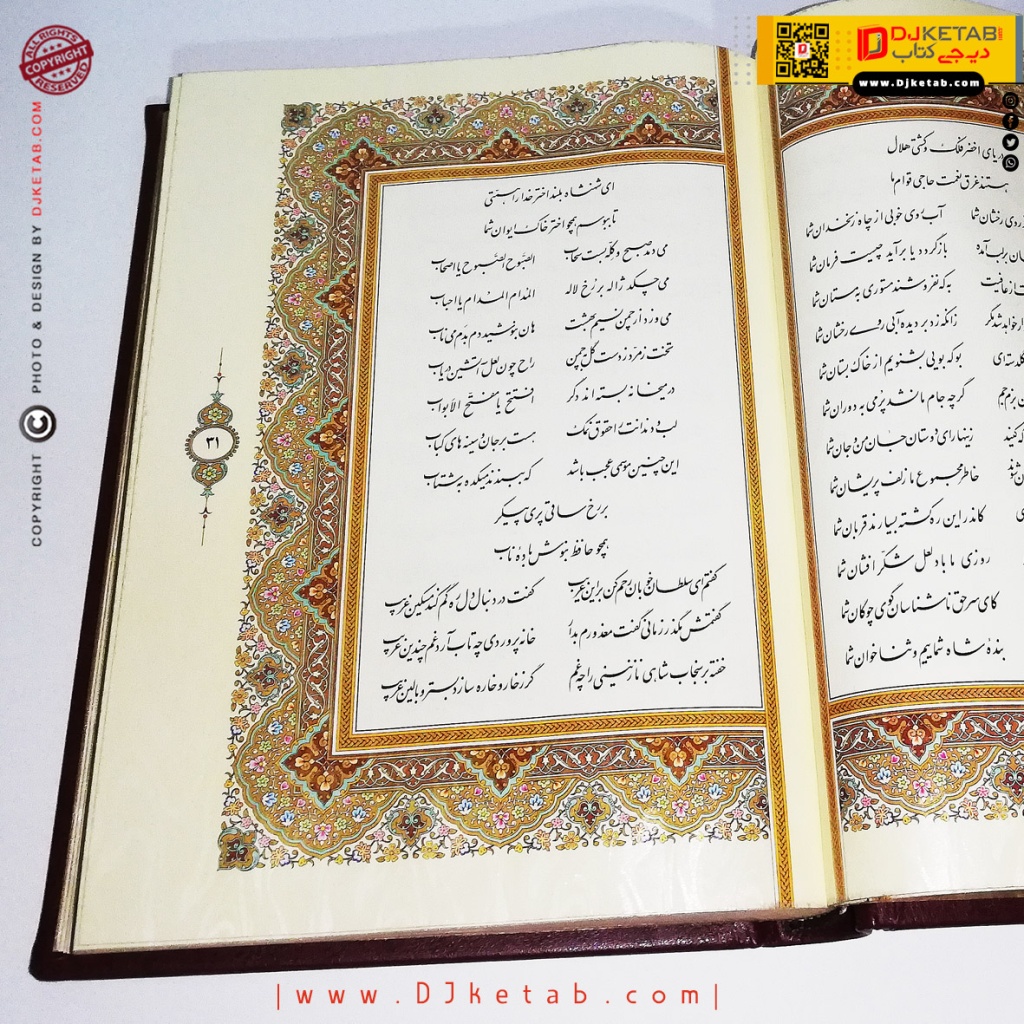 ALL RIGHTS RESERVED
COPYRIGHT
COPYRIGHT C PHOTO & DESIGN BY DJKETAB.COM
DJKETAB.COM
دی جی کتاب
www.Djketab.com
دریای اخضر فلک و کشتی هلال
هستند غرق نعمت حاجی قوام ما
روی رخشان شما آب روی خوبی از چاه زنخدان شما
جان بر لب آمده بازگردد یا برآید چیست فرمان شما
از عافیت به که نفروشند مستوری به مستان شما
خواهد شد مگر زانکه زد بر دیده آبی روی رخشان شما
گلدسته‌ای بوکه بویی بشنویم از خاک بستان شما
بزم جم گرچه جام ما نشد پر می به دوران شما
کنید زینهار ای دوستان جان من و جان شما
خاطر مجموع ما زلف پریشان شما
کاندر این ره کشته بسیارند قربان شما
روزی ما باد لعل شکر افشان شما
کای سر حق ناشناسان گوی چوگان شما
بنده شاه شماییم و ثناخوان شما
ای شهنشاه بلند اختر خدا را همتی
تا ببوسم همچو اختر خاک ایوان شما
می دمد صبح و کله بست سحاب الصبوح الصبوح یا اصحاب
می چکد ژاله بر رخ لاله المدام المدام یا احباب
می وزد از چمن نسیم بهشت هان بنوشید دم به دم می ناب
تخت زمرد زدست گل به چمن راح چون لعل آتشین دریاب
در میخانه بسته اند دگر افتتح یا مفتح الابواب
لب و دندانت را حقوق نمک هست بر جان و سینه های کباب
این چنین موسمی عجب باشد که ببندند میکده به شتاب
بر رخ ساقی پری پیکر
همچو حافظ بنوش باده ناب
گفتم ای سلطان خوبان رحم کن بر این غریب گفت در دنبال دل ره گم کند مسکین غریب
گفتمش مگذر زمانی گفت معذورم بدار خانه پروردی چه تاب آرد غم چندین غریب
خفته بر سنجاب شاهی نازنینی را چه غم گر ز خار و خاره سازد بستر و بالین غریب
۳۱
|www.DJketab.com|